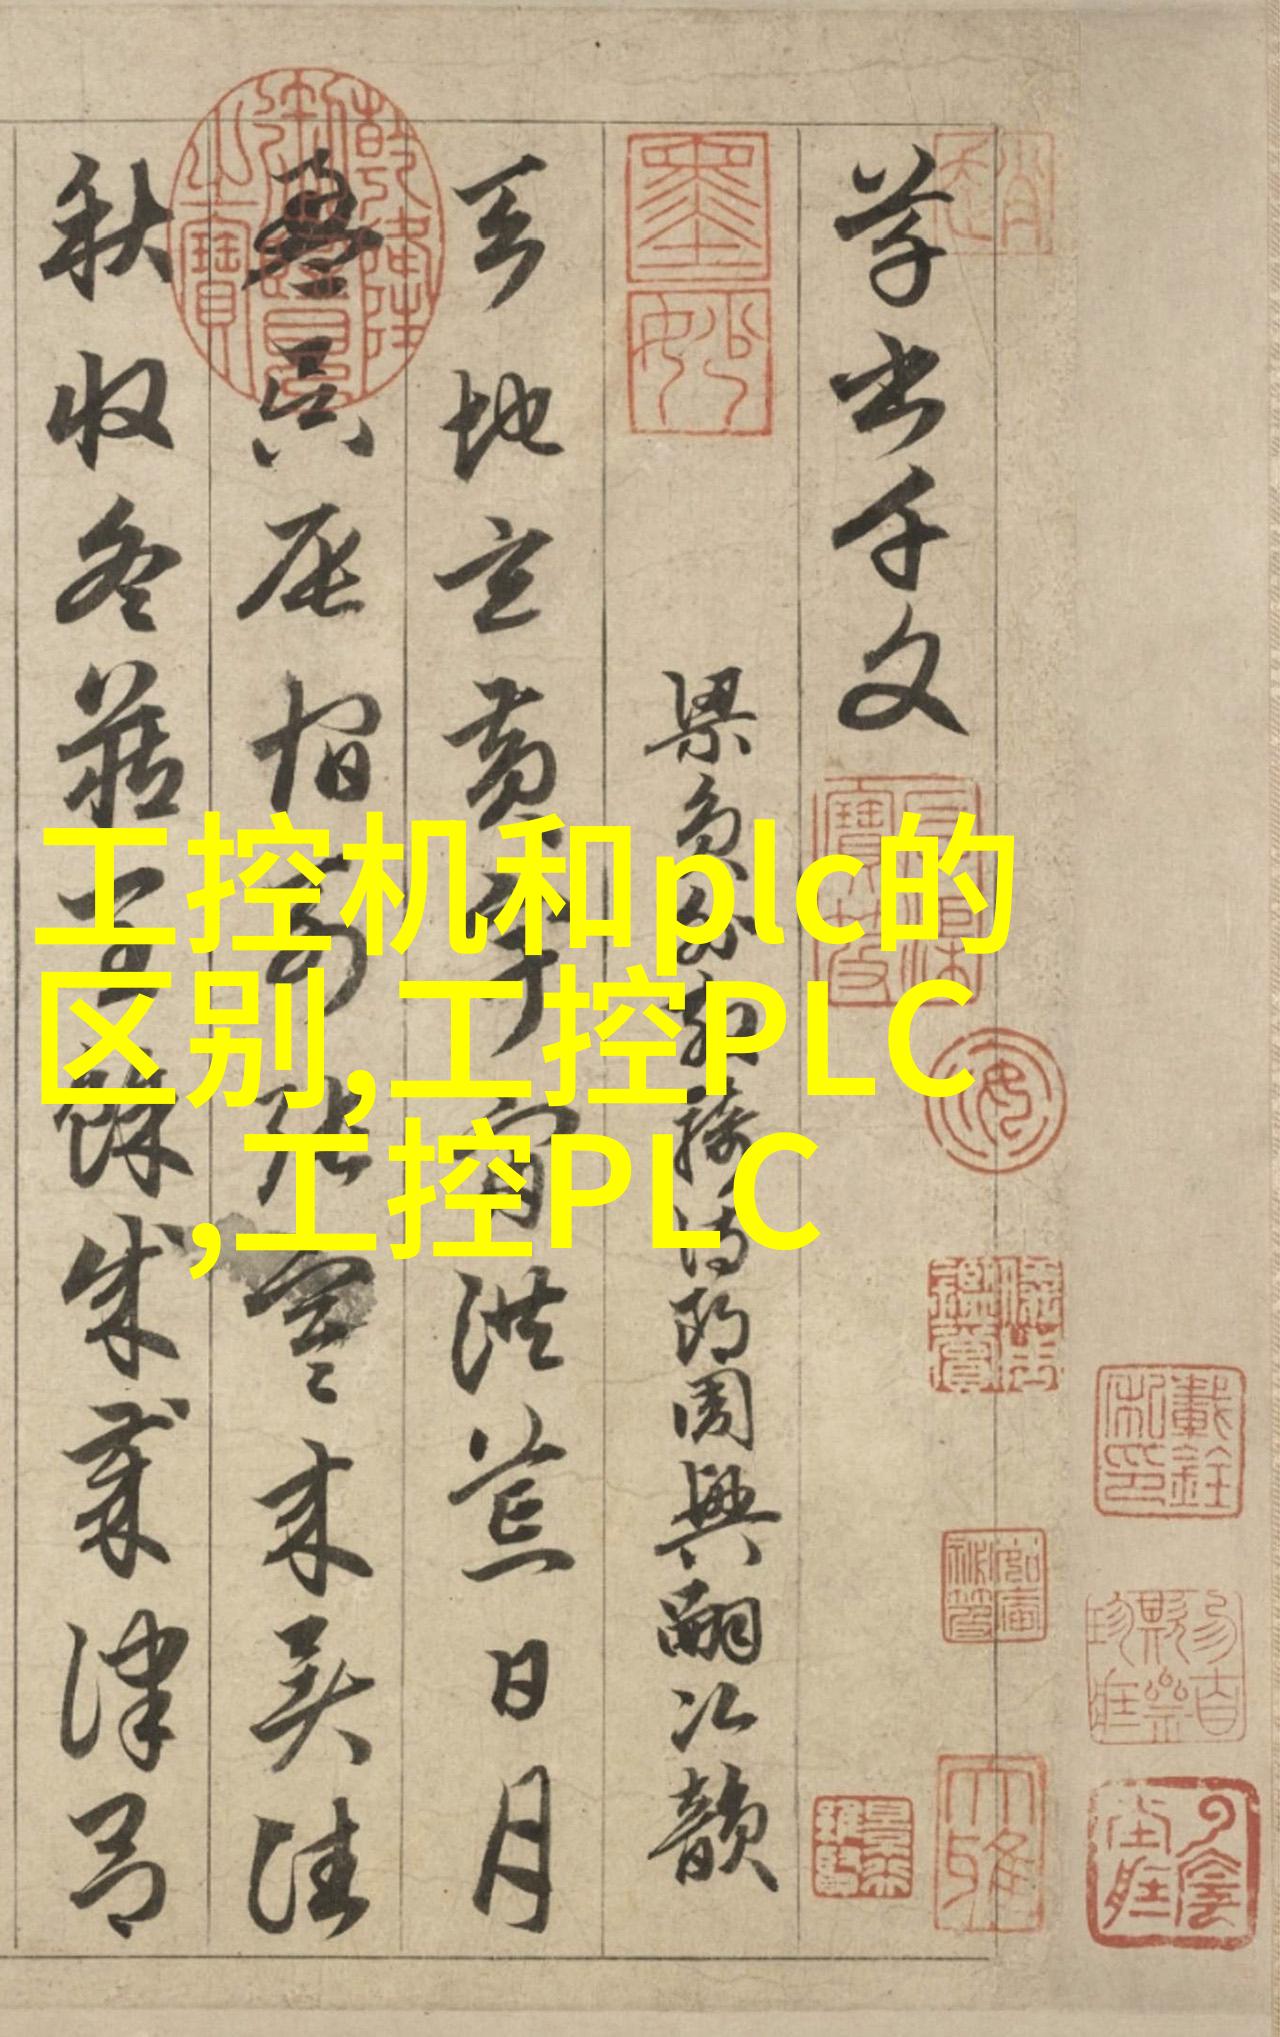 工控机和plc的
区别,工控PLC
,工控PLC
草書千文
梁員外散騎侍郎周興嗣次韻
天地玄黃宇宙洪荒日月
盈昃辰宿列張寒來暑往
秋收冬藏閏餘成歲律呂
墨妙
乾隆御覽之寶
大雅